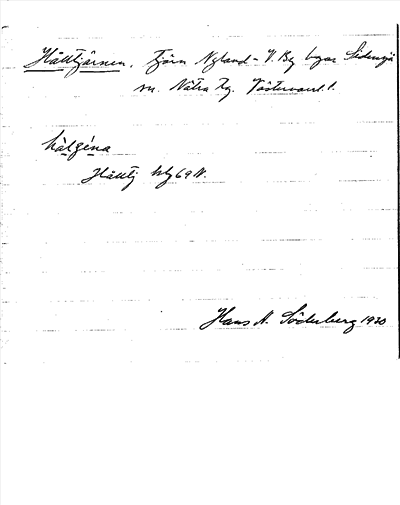 Hälltjärnen. Tjärn Nyland - V. By byar Sidensjö
sn. Nätra tg. Västernorrl. l.
hàlgéna
Hälltj
Hans N. Söderberg 1930